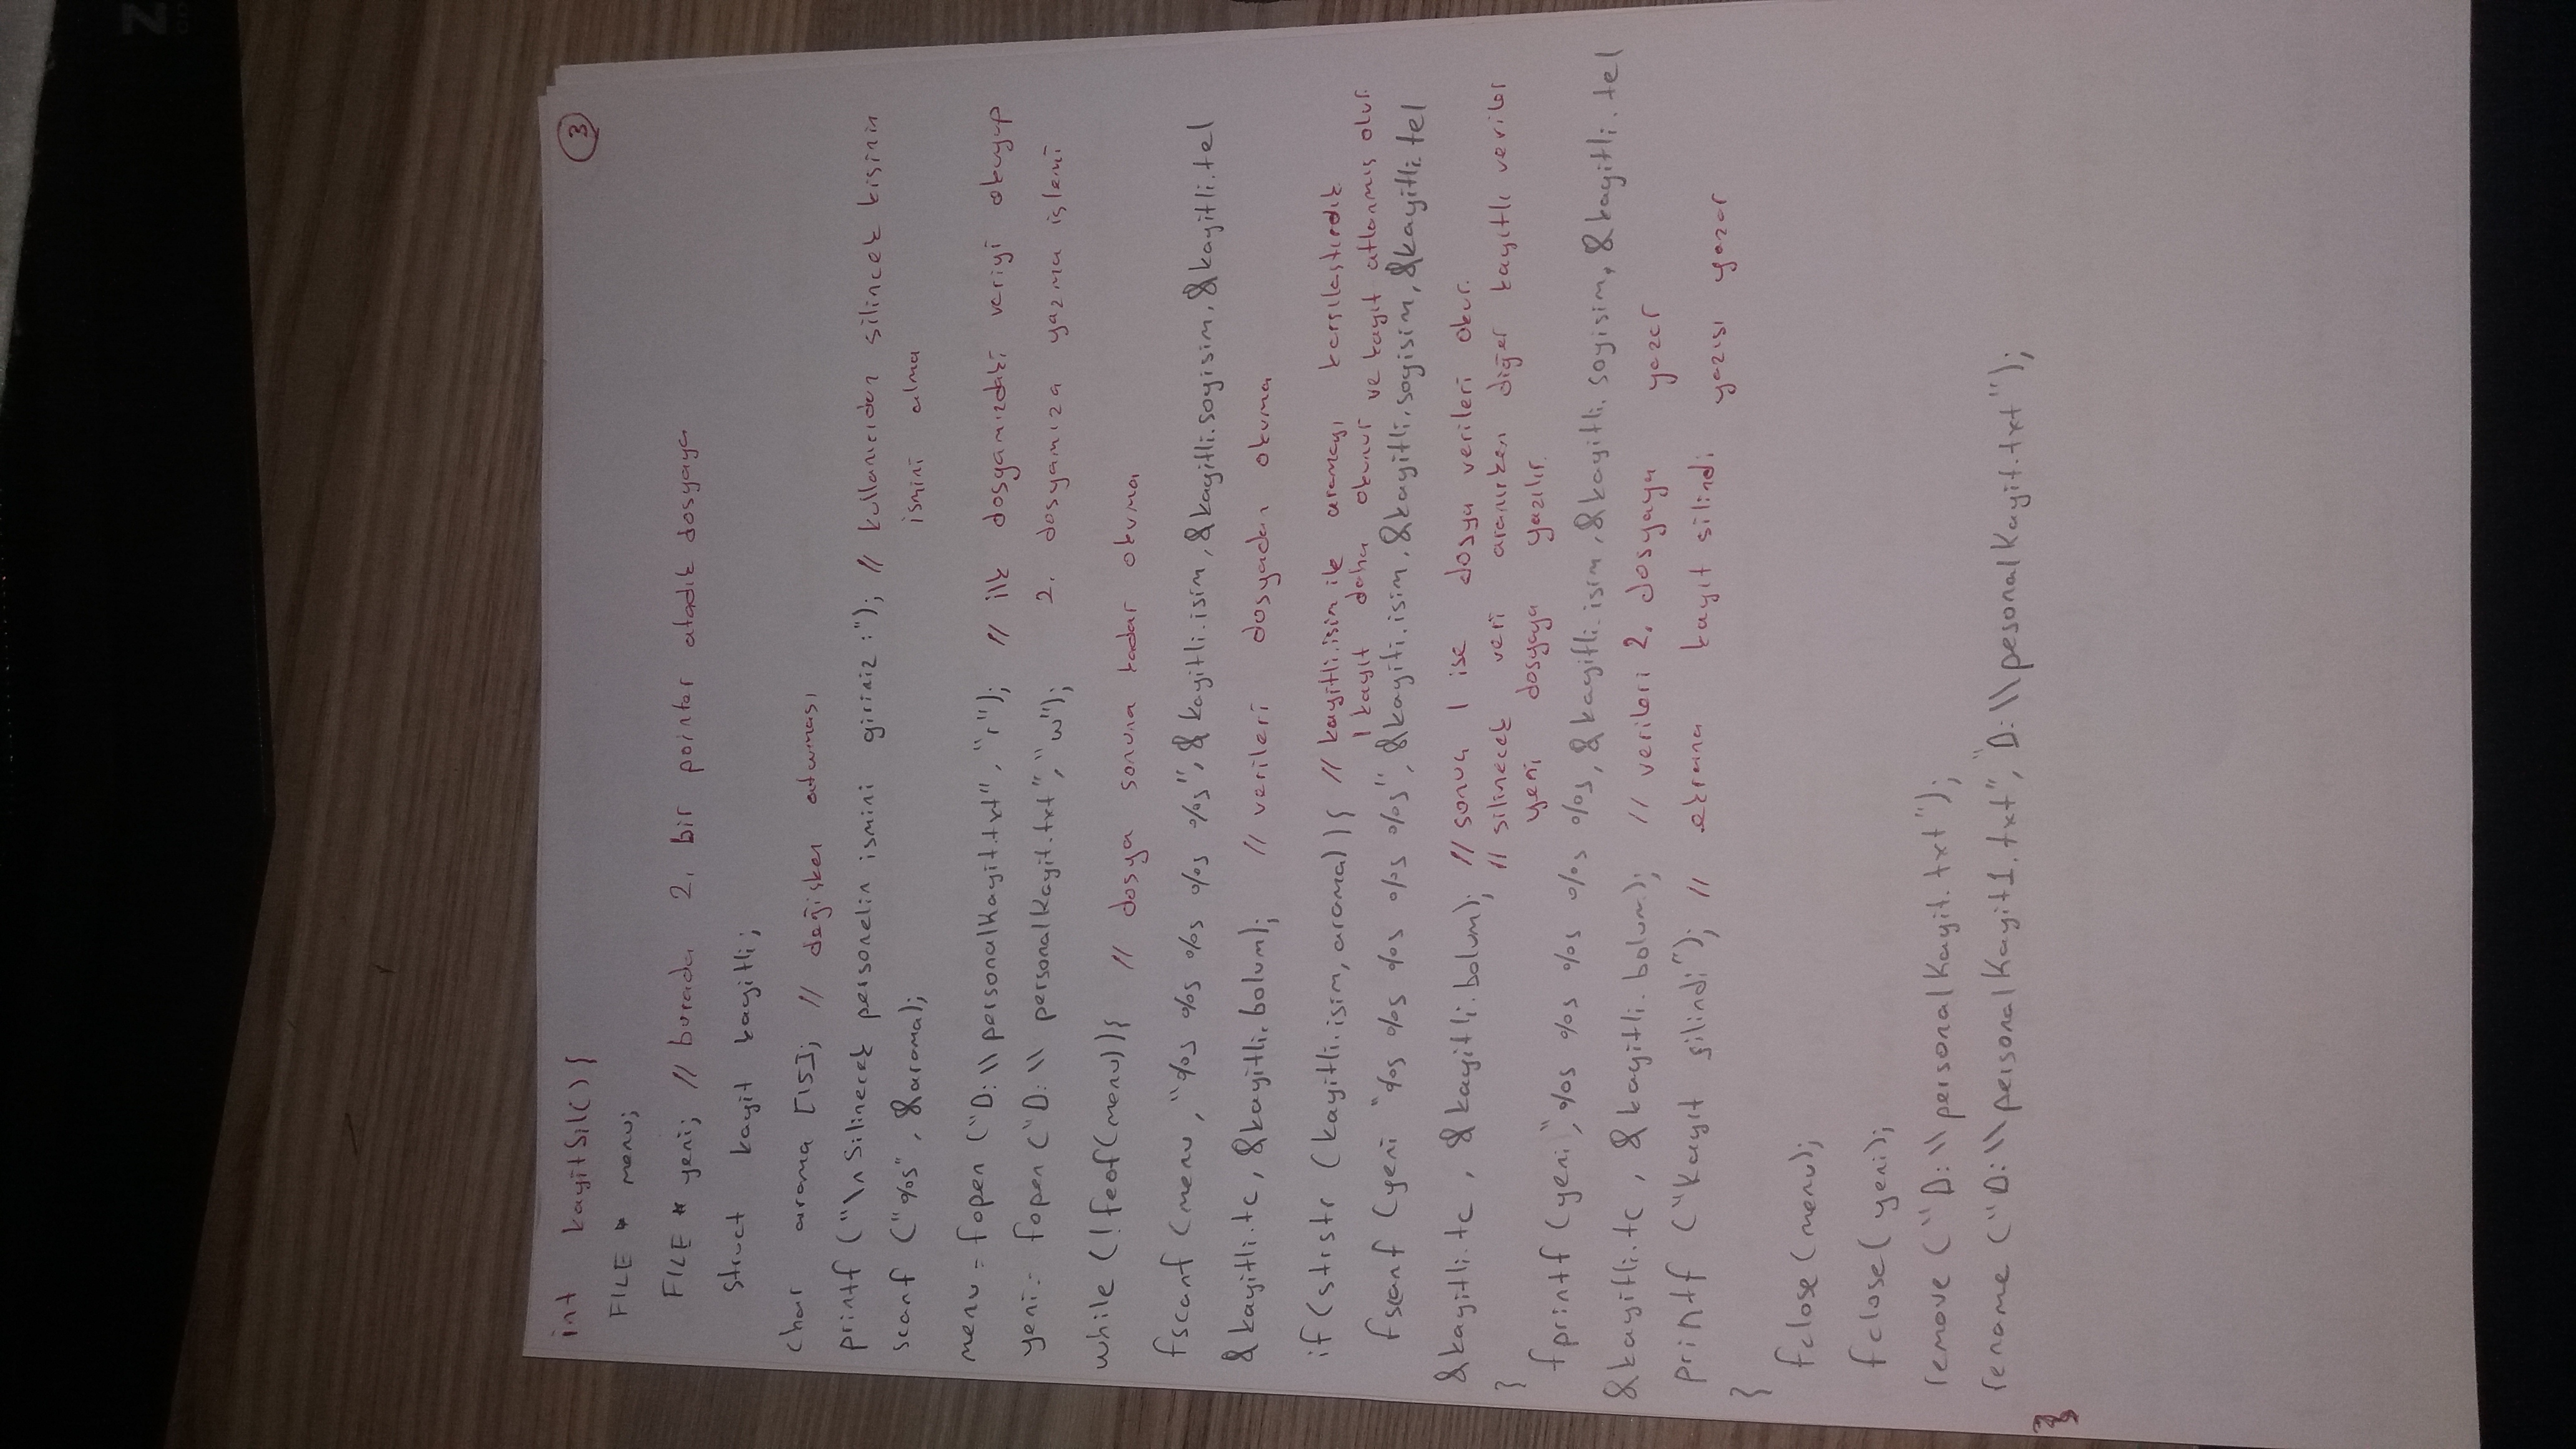 3
int kayitSil(){
FILE * menu;
FILE * yeni; // burada 2. bir pointer atadık dosyaya
struct kayit kayitli;
char arama [15]; // değişken atanması
printf ("\n Silinecek personelin ismini giriniz :"); // kullanıcıdan silincek kişinin
scanf ("%s", &arama); ismini alma
menu = fopen ("D:\\personalKayit.txt", "r"); // ilk dosyamızdaki veriyi okuyup
yeni = fopen ("D:\\ personalKayit.txt", "w"); 2. dosyamıza yazma işlemi
while (!feof(menu)){ // dosya sonuna kadar okuma
fscanf (menu, "%s %s %s %s %s", &kayitli.isim, &kayitli.soyisim, &kayitli.tel
&kayitli.tc, &kayitli.bolum); // verileri dosyadan okuma
if (strstr (kayitli.isim, arama)){ // kayitli.isim ile aramayı karşılaştırdık
1 kayıt daha okunur ve kayıt atlanmış olur.
fscanf (yeni "%s %s %s %s %s", &kayiti.isim, &kayitli.soyisim, &kayitli.tel
&kayitli.tc, &kayitli.bolum); // sonuç 1 ise dosya verileri okur.
// silinecek veri aranırken diğer kayıtlı veriler
} yeni dosyaya yazılır.
fprintf (yeni, "%s %s %s %s %s, &kayitli.isim, &kayitli.soyisim, &kayitli.tel
&kayitli.tc, &kayitli.bolum); // verileri 2. dosyaya yazar
printf ("Kayıt silindi"); // ekrana kayıt silindi yazısı yazar
}
fclose (menu);
fclose( yeni);
remove ("D:\\personalKayit.txt");
rename ("D:\\personalKayit1.txt", "D:\\pesonalKayit.txt");
}